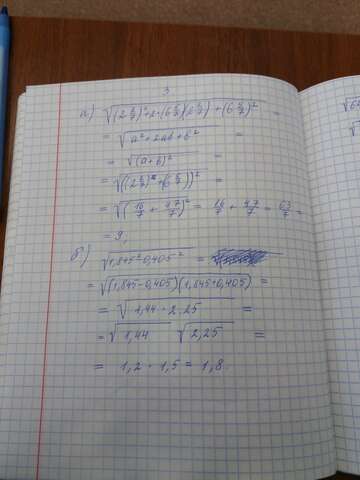 3
а) √((2 2/7)²+2·(6 5/7)(2 2/7)+(6 5/7)²) =
= √(a²+2ab+b²) =
= √((a+b)²) =
= √(((2 2/7)+(6 5/7))²) =
= √((16/7 + 47/7)²) = 16/7 + 47/7 = 63/7 =
= 9,
б) √(1,845²-0,405²) =
= √((1,845-0,405)(1,845+0,405)) =
= √(1,44 · 2,25) =
= √(1,44) √(2,25) =
= 1,2 · 1,5 = 1,8.